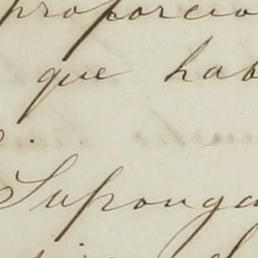 proporcio
que hab
Suponga